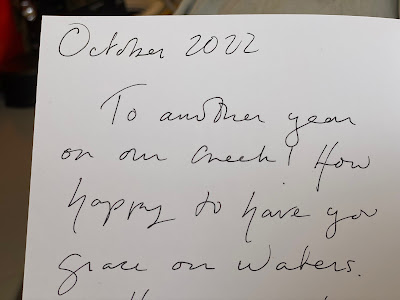 October 2022
To another year
on our creek! How
happy to have you
grace our waters.